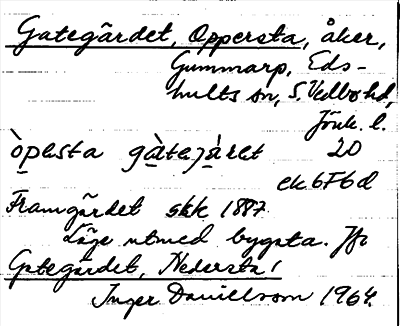 Gategärdet, Oppersta, åker,
Gummarp, Eds-
hults sn, S. Vedbo hd,
Jönk. l.
òpesta gàtejàret 20
ek 6F6d
Framgärdet skk 1887
Läge utmed bygata. Jfr
Gategärdet, Nedersta!
Inger Danielsson 1964.